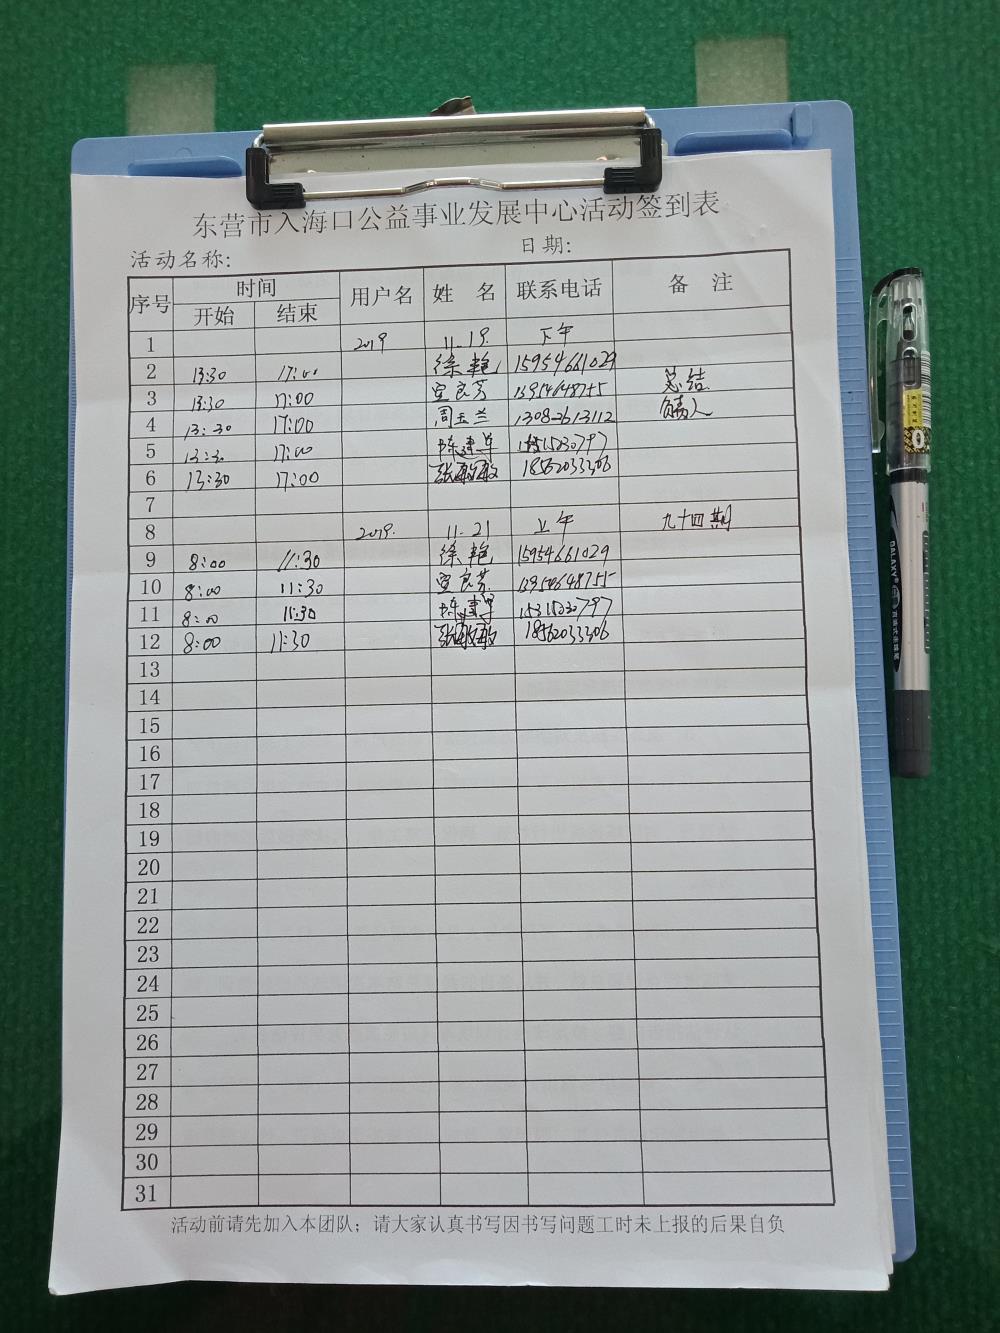 东营市入海口公益事业发展中心活动签到表
活动名称: 日期:
序号 时间 用户名 姓 名 联系电话 备 注
开始 结束
1 2019 11.19. 下午
2 13:30 17:00 徐艳 15954661029
3 13:30 17:00 宣良芳 13954648755 总结
4 13:30 17:00 周玉兰 1308-2613112
5 13:30 17:00 陈建华
6 13:30 17:00 张敏敏 18562033306
7
8 2019. 11.21 上午 九十四期
9 8:00 11:30 徐艳 15954661029
10 8:00 11:30 宣良芳 13954648755
11 8:00 11:30 陈建华 15315230797
12 8:00 11:30 张敏敏 18562033306
13
14
15
16
17
18
19
20
21
22
23
24
25
26
27
28
29
30
31
活动前请先加入本团队；请大家认真书写因书写问题工时未上报的后果自负
GALAXY